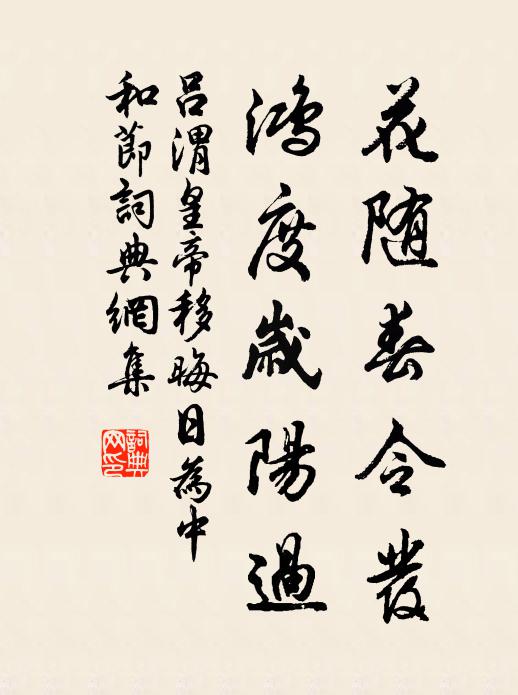 花随春令發
鴻度歲陽過
吕渭皇帝移晦日為中
和節詞典網集
詞典
网印